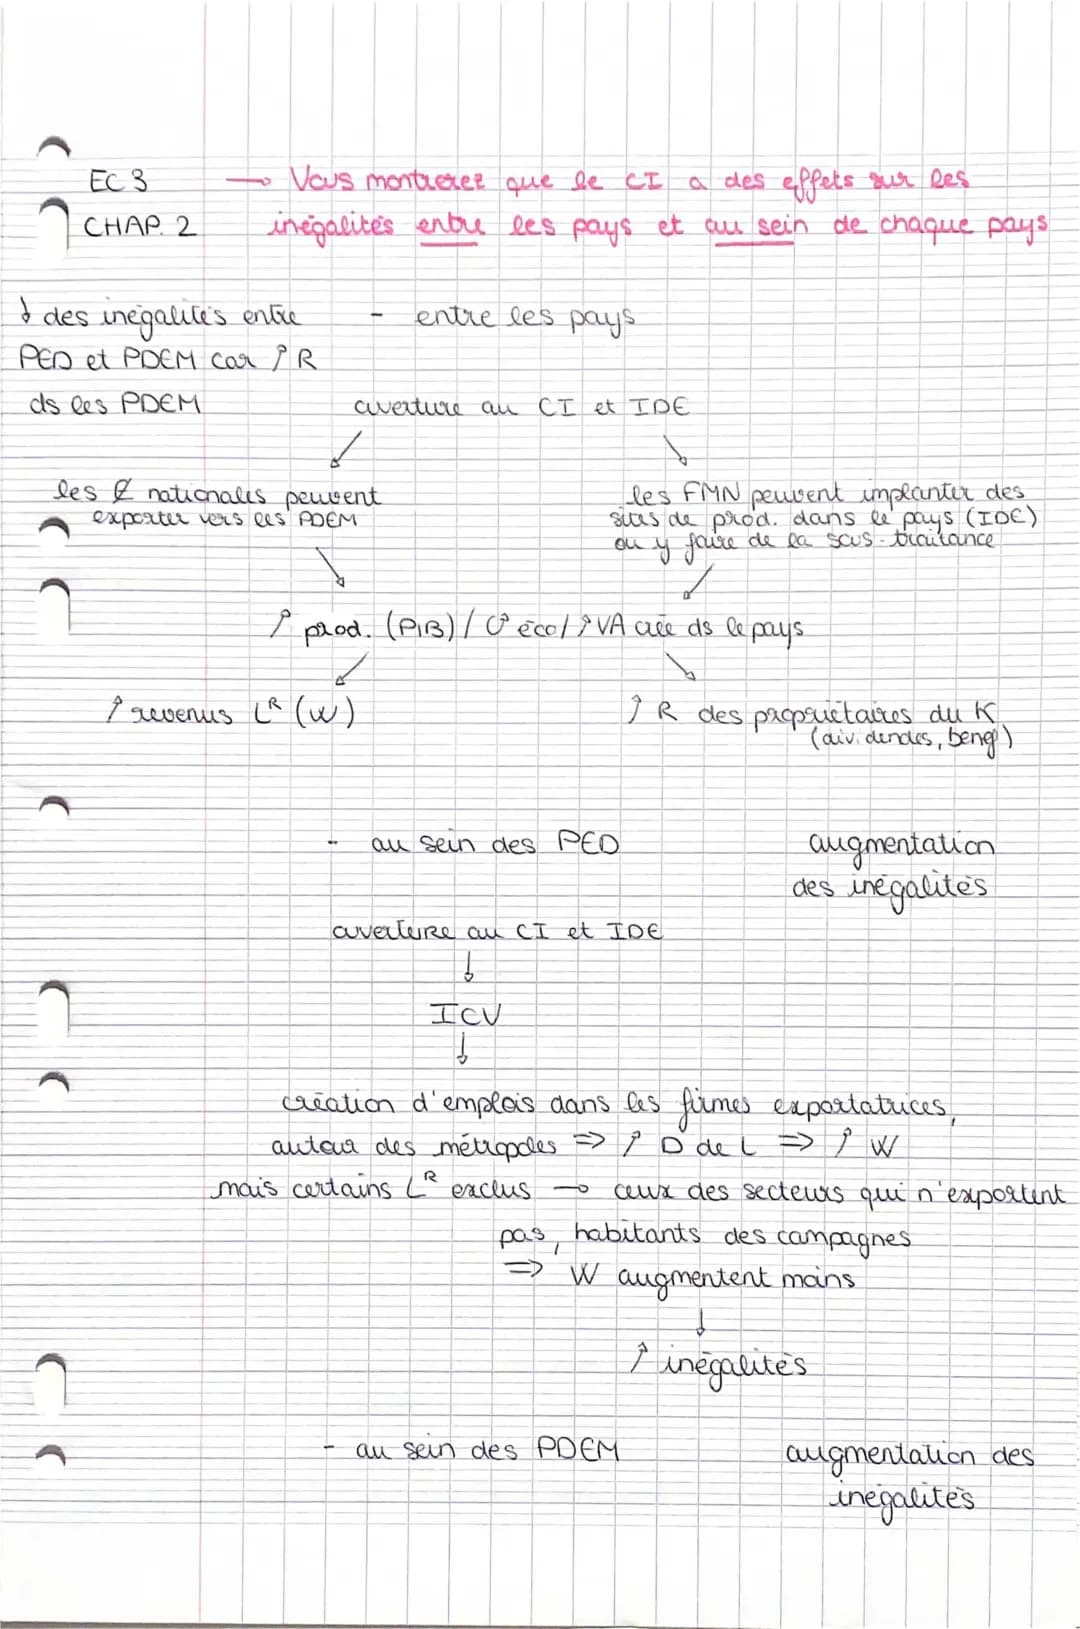 EC 3 → Vous montrerez que le CI a des effets sur les
CHAP. 2 inégalités entre les pays et au sein de chaque pays
↓ des inégalités entre - entre les pays
PED et PDEM car ↑ R
ds les PDEM
ouverture au CI et IDE
↙ ↘
les E nationales peuvent
exporter vers les PDEM
les FMN peuvent implanter des
sites de prod. dans le pays (IDE)
ou y faire de la sous-traitance
↘ ↙
↑ prod. (PIB) / éco / ↑ VA créé ds le pays
↙ ↘
↑ revenus Lᴿ (W) ↑ R des propriétaires du K
(dividendes, benef)
- au sein des PED augmentation
des inégalités
ouverture au CI et IDE
↓
ICV
↓
création d'emplois dans les firmes exportatrices,
autour des métropoles ⇒ ↑ D de L ⇒ ↑ W
mais certains Lᴿ exclus → ceux des secteurs qui n'exportent
pas, habitants des campagnes
⇒ W augmentent moins
↓
↑ inégalités
- au sein des PDEM augmentation des
inégalités